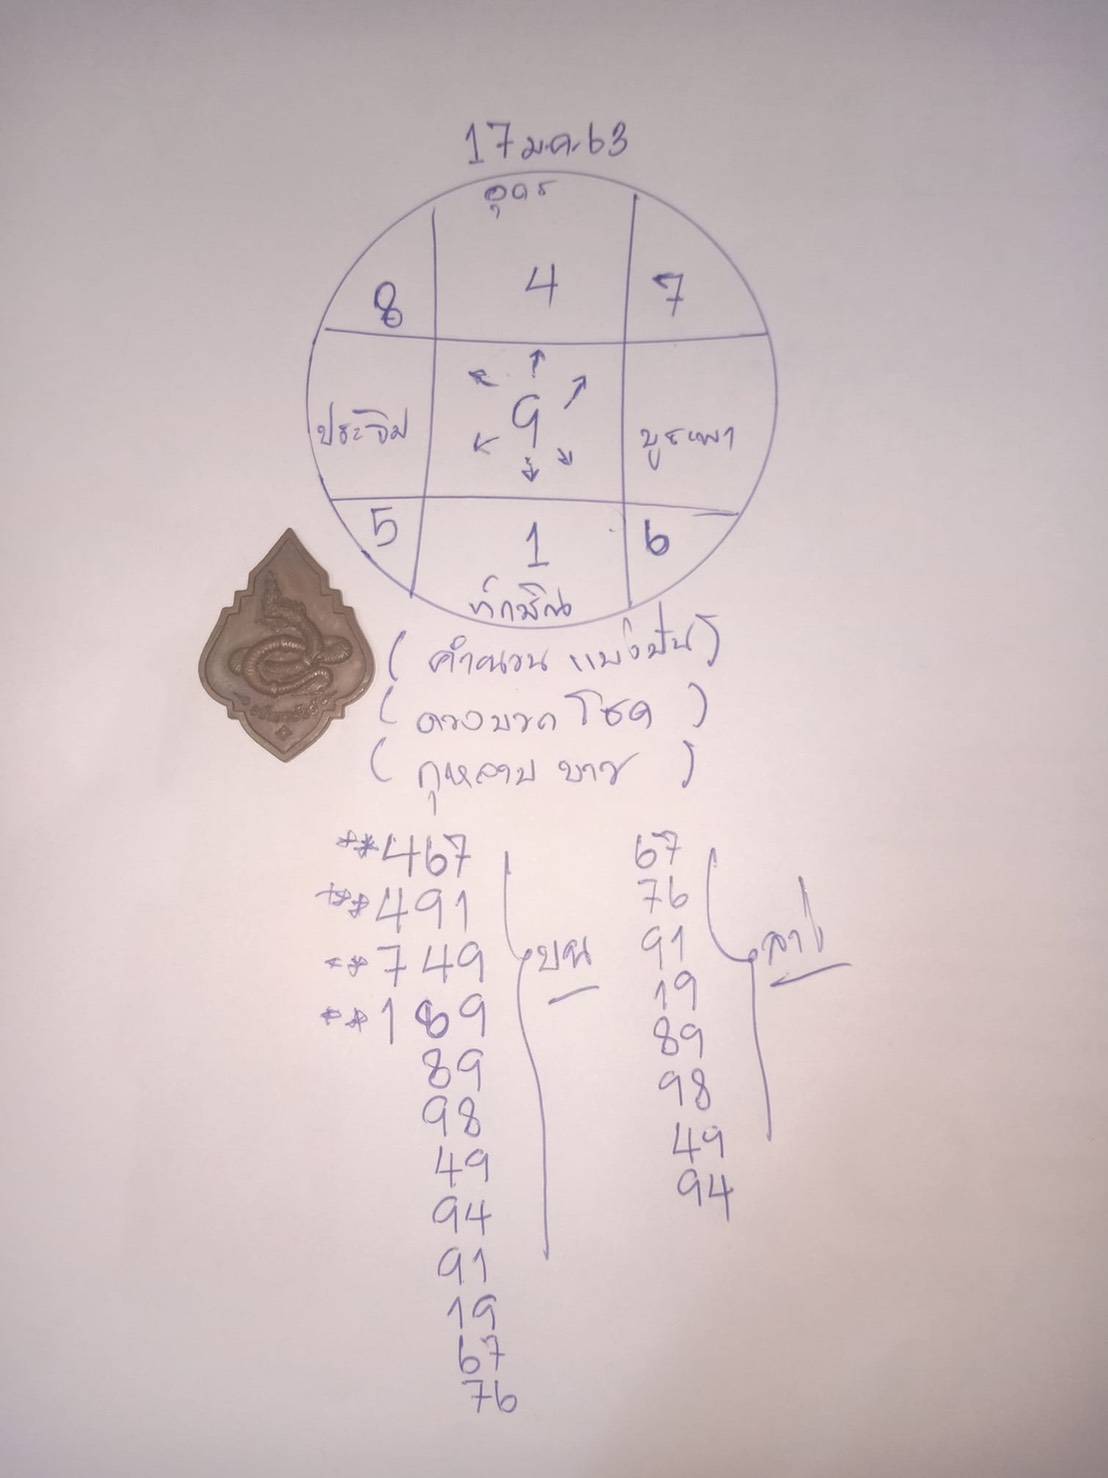 17 ม.ค. 63
อุดร
8 4 7
ประจิม 9 บูรพา
5 1 6
ทักษิณ
(คำนวน แบ่งปัน)
(ดวงบวก โชค)
(กุหลาบ ขาว)
**467
***491
**749
**189
89
98
49
94
91
19
67
76
บน
67
76
91
19
89
98
49
94
ล่าง